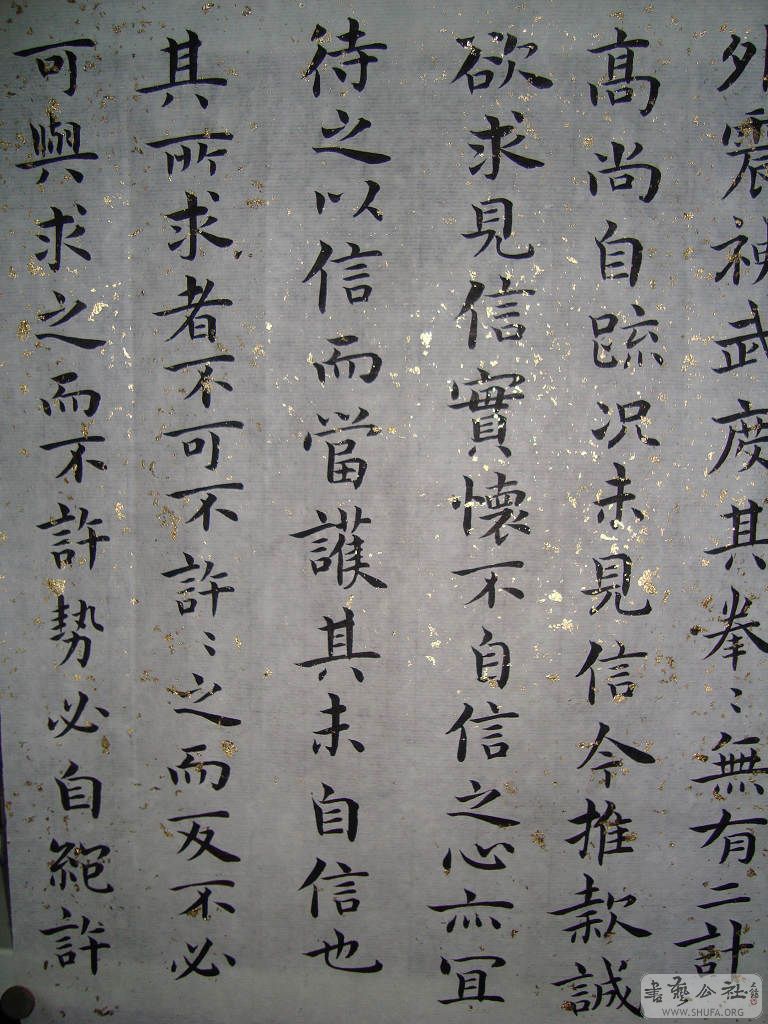 外震神武度其拳〻無有二計
高尚自䟽况未見信今推款誠
欲求見信實懷不自信之心亦冝
待之以信而當護其未自信也
其所求者不可不許〻之而反不必
可與求之而不許勢必自絕許
書藝公社
WWW.SHUFA.ORG